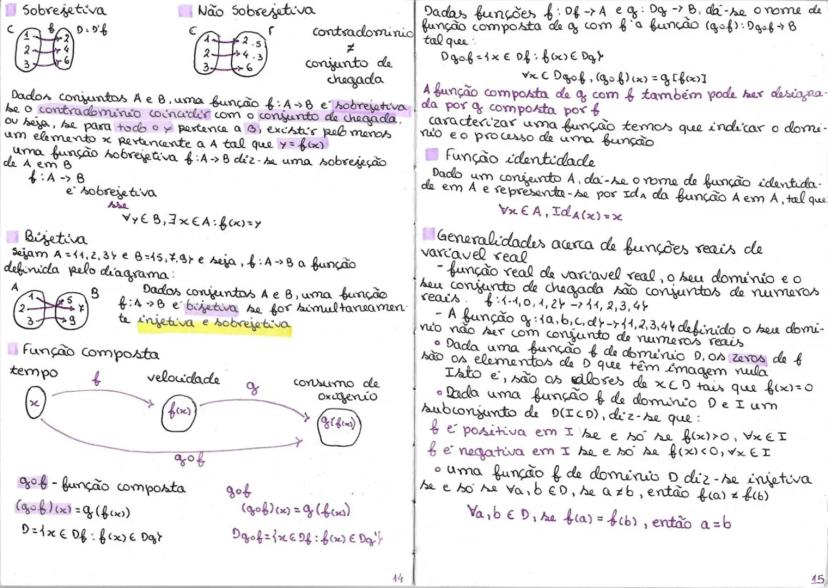 Sobrejetiva
Não Sobrejetiva
C f D=D'f
1 2 3
2 4 6
C F
1 2 3
2 .5
4 .3
6
contradominio
≠
conjunto de
chegada
Dados conjuntos A e B, uma função f:A->B é sobrejetiva
se o contradominio coincidir com o conjunto de chegada,
ou seja, se para todo o y pertence a B, existir pelo menos
um elemento x pertencente a A tal que y=f(x)
uma função sobrejetiva f:A->B diz-se uma sobrejeção
de A em B
f:A->B
é sobrejetiva
sse
∀y∈B,∃x∈A:f(x)=y
Bijetiva
Sejam A={1,2,3} e B={5,7,9} e seja, f:A->B a função
definida pelo diagrama:
A B
1 2 3
5 7 9
Dados conjuntos A e B, uma função
f:A->B é bijetiva se for simultaneamen-
te injetiva e sobrejetiva
Função composta
tempo f velocidade g consumo de
oxigénio
x f(x) g(f(x))
gof
gof - função composta
(gof)(x)=g(f(x))
D={x∈Df:f(x)∈Dg}
gof
(gof)(x)=g(f(x))
Dgof={x∈Df:f(x)∈Dg}
14
Dadas funções f:Df->A e g:Dg->B, dá-se o nome de
função composta de g com f à função (gof):Dgof->B
tal que:
Dgof={x∈Df:f(x)∈Dg}
∀x∈Dgof,(gof)(x)=g[f(x)]
A função composta de g com f também pode ser designa-
da por g composta por f
caracterizar uma função temos que indicar o domi-
nio e o processo de uma função
Função identidade
Dado um conjunto A, dá-se o nome de função identida-
de em A e representa-se por IdA da função A em A, tal que
∀x∈A, IdA(x)=x
Generalidades acerca de funções reais de
variável real
- função real de variável real, o seu dominio e o
seu conjunto de chegada são conjuntos de numeros
reais. f:{-1,0,1,2}->{1,2,3,4}
- A função g:{a,b,c,d}->{1,2,3,4} definido o seu domi-
nio não ser com conjunto de numeros reais
• Dada uma função f de dominio D, os zeros de f
são os elementos de D que têm imagem nula
Isto é, são os valores de x⊂D tais que f(x)=0
• Dada uma função f de dominio D e I um
subconjunto de D(I⊂D), diz-se que:
f é positiva em I se e só se f(x)>0, ∀x∈I
f é negativa em I se e só se f(x)<0, ∀x∈I
• uma função f de dominio D diz-se injetiva
se e só se ∀a,b∈D, se a≠b, então f(a)≠f(b)
∀a,b∈D, se f(a)=f(b), então a=b
15